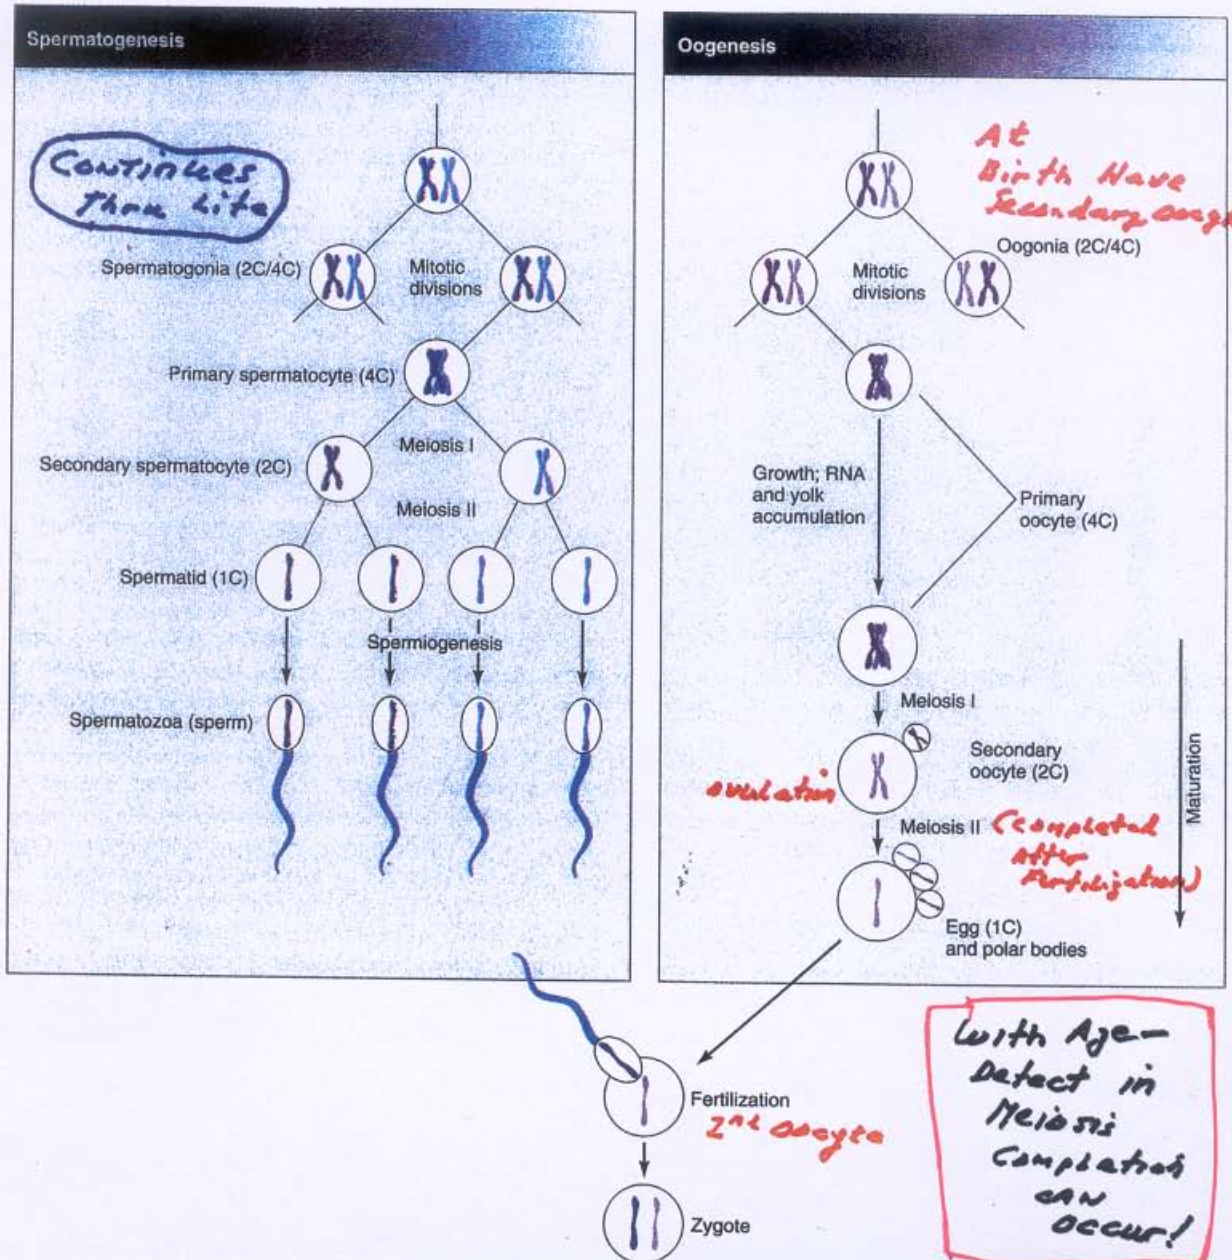 Spermatogenesis
Continues
Thru Life
Spermatogonia (2C/4C)
Mitotic
divisions
Primary spermatocyte (4C)
Meiosis I
Secondary spermatocyte (2C)
Meiosis II
Spermatid (1C)
Spermiogenesis
Spermatozoa (sperm)
Oogenesis
At
Birth Have
Secondary
Oogonia (2C/4C)
Mitotic
divisions
Growth; RNA
and yolk
accumulation
Primary
oocyte (4C)
Meiosis I
Secondary
oocyte (2C)
ovulation
Meiosis II (completed
After
Fertilization)
Egg (1C)
and polar bodies
Maturation
Fertilization
2nd oocyte
Zygote
With Age-
Defect in
Meiosis
Completion
CAN
OCCUR!